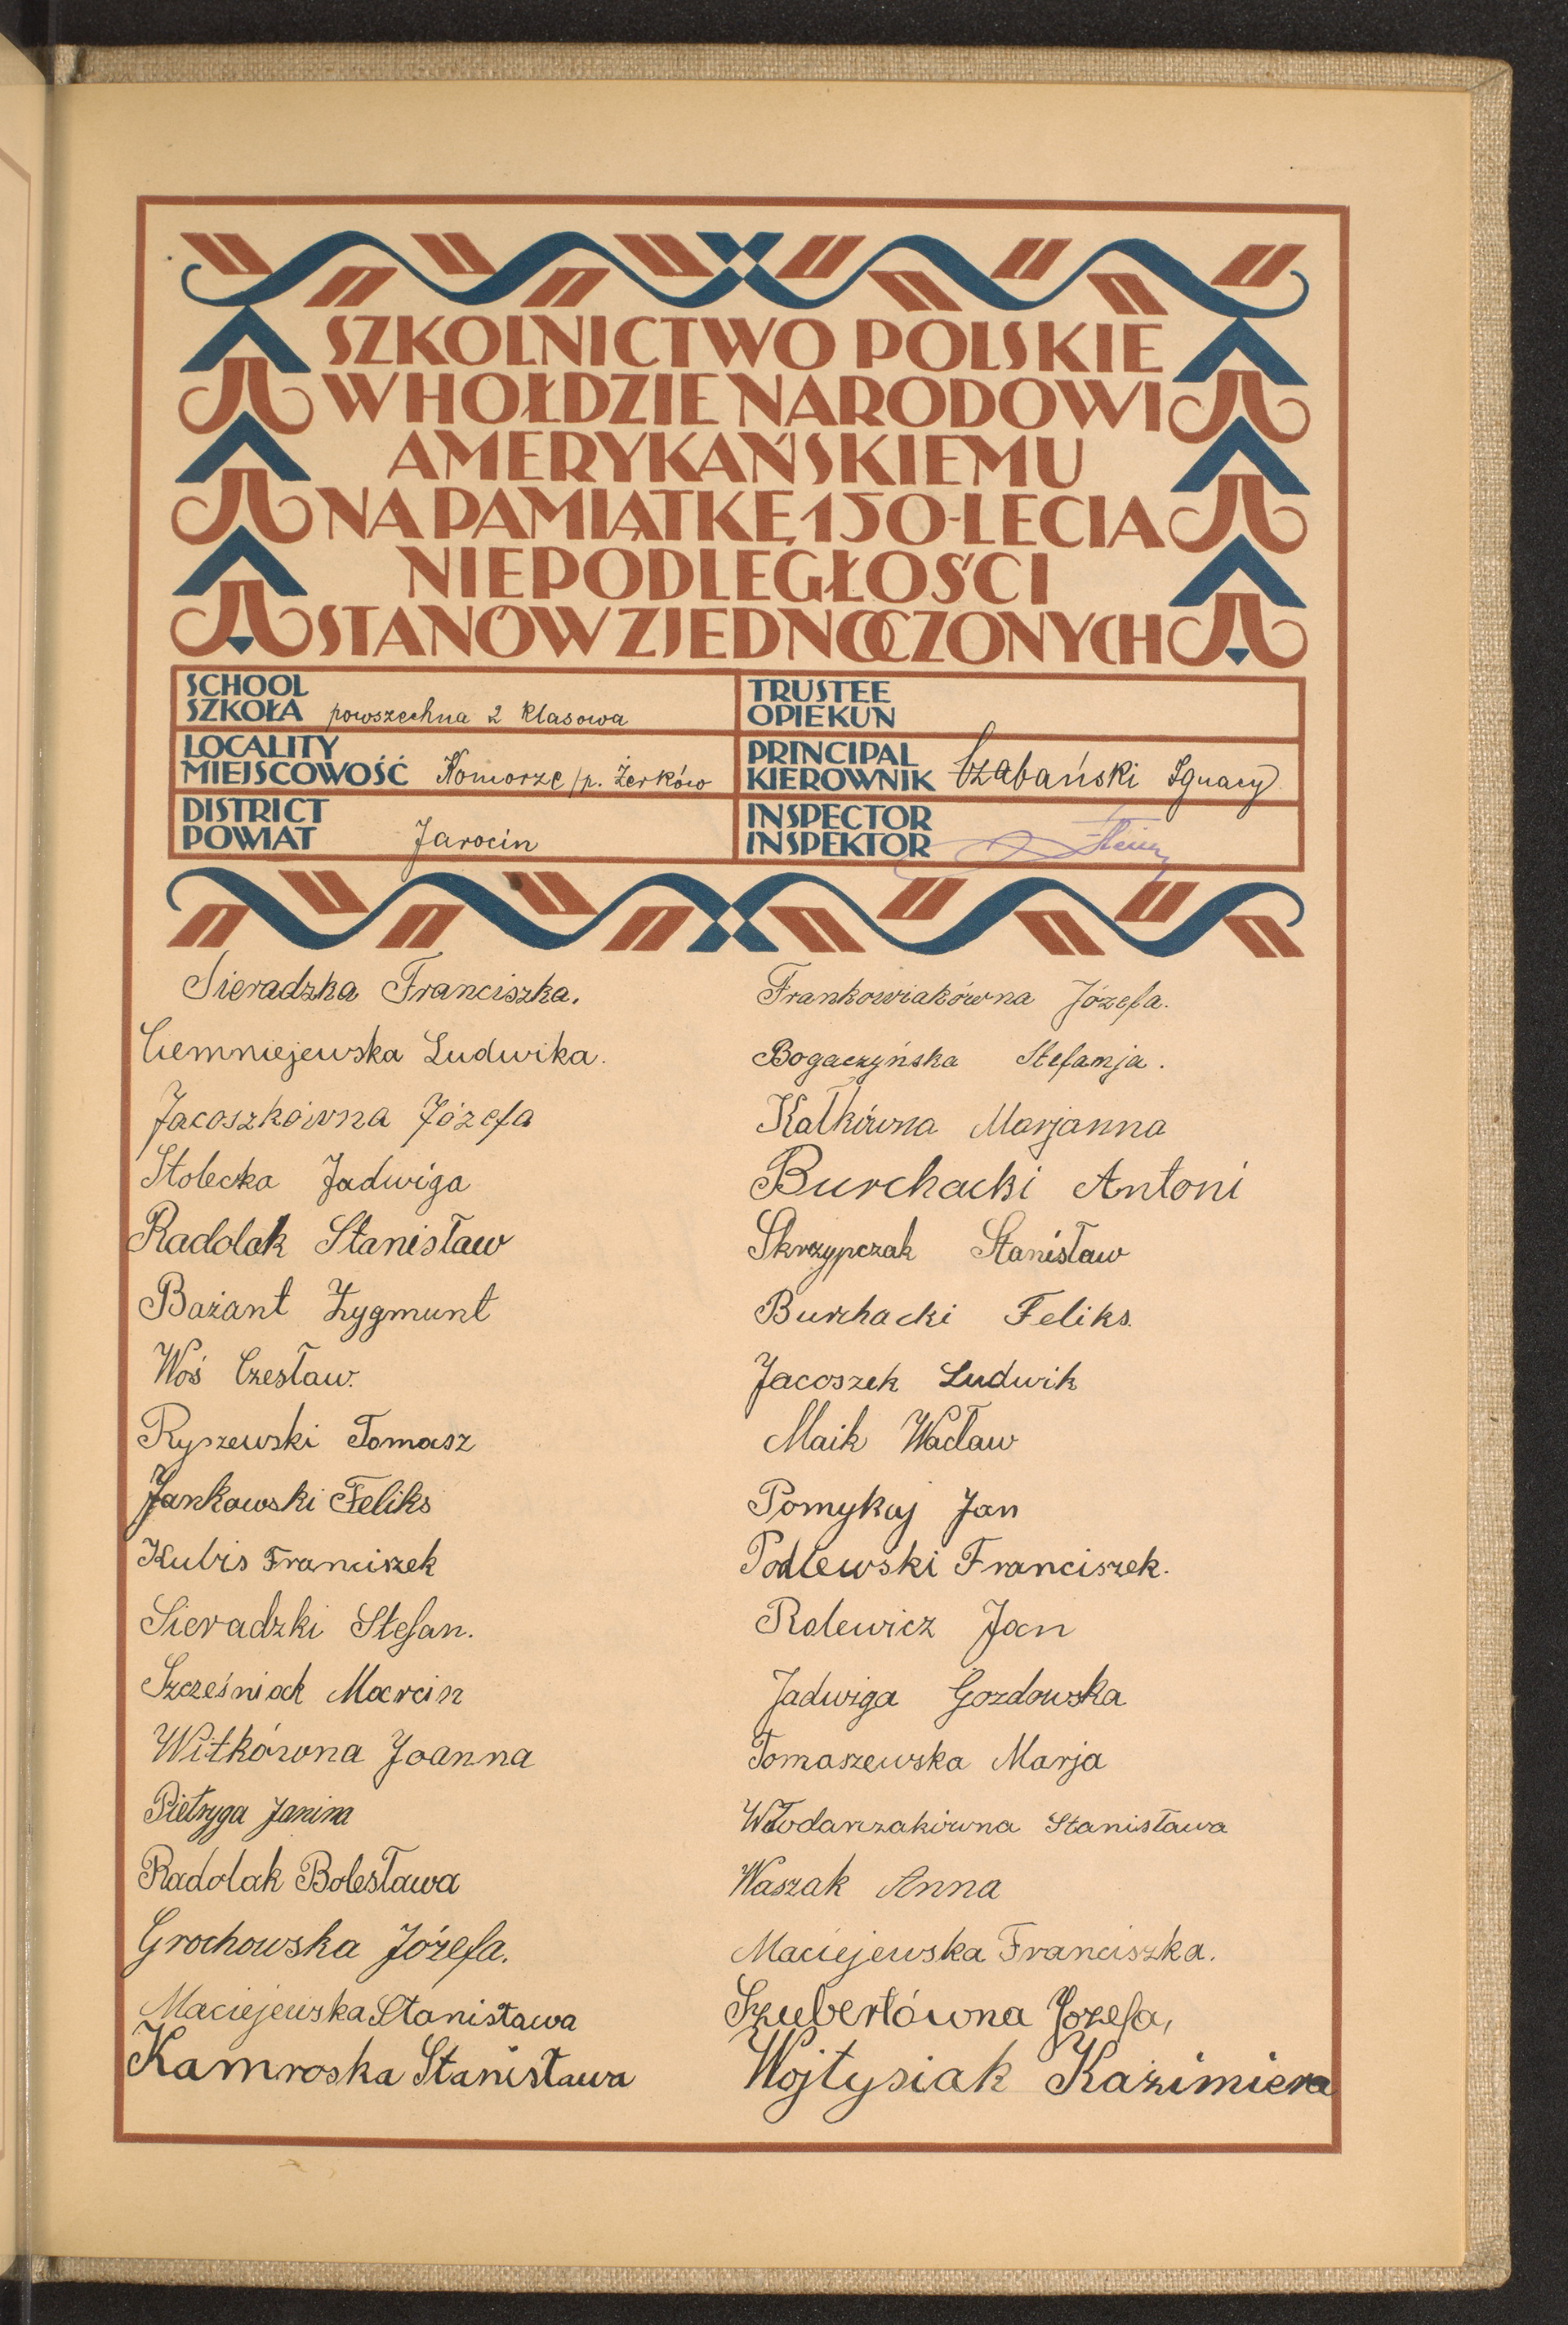 SZKOLNICTWO POLSKIE
W HOŁDZIE NARODOWI
AMERYKAŃSKIEMU
NA PAMIĄTKĘ 150-LECIA
NIEPODLEGŁOŚCI
STANÓW ZJEDNOCZONYCH
SCHOOL
SZKOŁA powszechna 2 klasowa
LOCALITY
MIEJSCOWOŚĆ Komorze /p. Żerków
DISTRICT
POWIAT Jarocin
TRUSTEE
OPIEKUN
PRINCIPAL
KIEROWNIK Czabański Ignacy
INSPECTOR
INSPEKTOR
Sieradzka Franciszka.
Ciemniejewska Ludwika.
Jacoszkówna Józefa
Stolecka Jadwiga
Radolak Stanisław
Bażant Zygmunt
Woś Czesław.
Ryszewski Tomasz
Jankowski Feliks
Kubis Franciszek
Sieradzki Stefan.
Szcześniak Marcin
Witkówna Joanna
Pietryga Janina
Radolak Bolesława
Grochowska Józefa.
Maciejewska Stanisława
Kamroska Stanisława
Frankowiakówna Józefa.
Bogaczyńska Stefanja.
Kałkówna Marjanna
Burchacki Antoni
Skrzypczak Stanisław
Burchacki Feliks.
Jacoszek Ludwik
Maik Wacław
Pomykaj Jan
Podlewski Franciszek.
Rolewicz Jan
Jadwiga Gozdowska
Tomaszewska Marja
Włodarczakówna Stanisława
Waszak Anna
Maciejewska Franciszka.
Szubertówna Józefa,
Wojtysiak Kazimiera